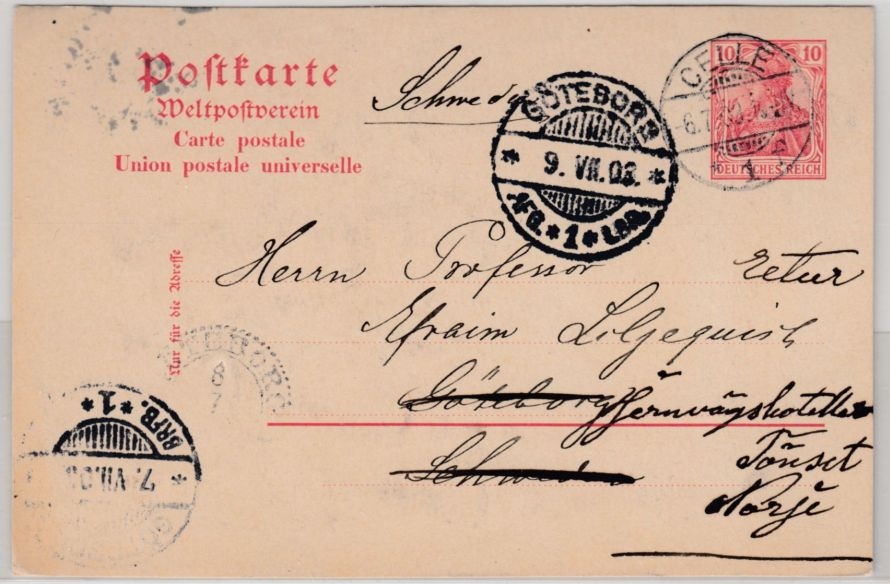 Postkarte
Weltpostverein
Carte postale
Union postale universelle
Nur für die Adresse
10 10
DEUTSCHES REICH
CELLE
1
GÖTEBORG
* 9. VII. 03. *
AFG. * 1 * LBR.
Herrn Professor Retur
Efraim Liljequist
Göteborg Jernvägshotellet
Schweden Tönset
Norje
8
7
BRFB. * 1 *
7. VII. 03